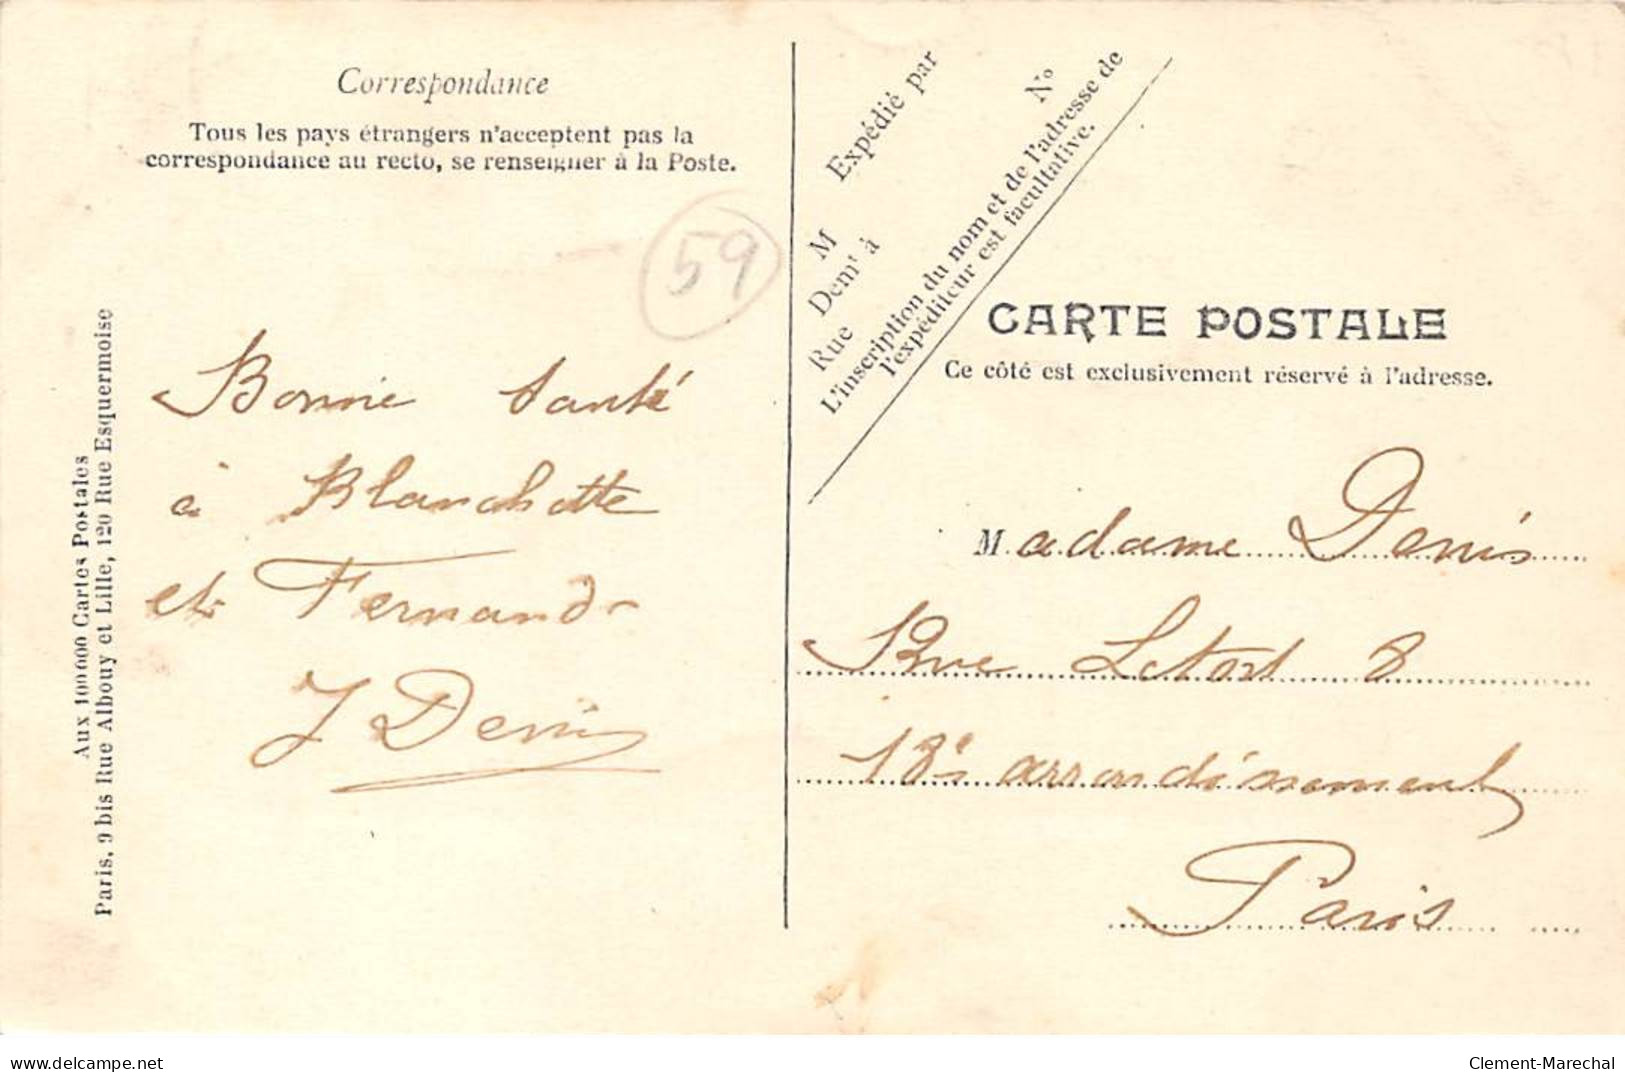 Correspondance
Tous les pays étrangers n'acceptent pas la
correspondance au recto, se renseigner à la Poste.
59
Bonne santé
à Blanchette
et Fernand
J Denis
Aux 100 000 Cartes Postales
Paris, 9 bis Rue Albouy et Lille, 120 Rue Esquermoise
Expédié par
M
Demt à
Rue
No
L'inscription du nom et de l'adresse de
l'expéditeur est facultative.
CARTE POSTALE
Ce côté est exclusivement réservé à l'adresse.
Madame Denis
Rue Letort 8
18e arrondissement
Paris
www.delcampe.net
Clement-Marechal